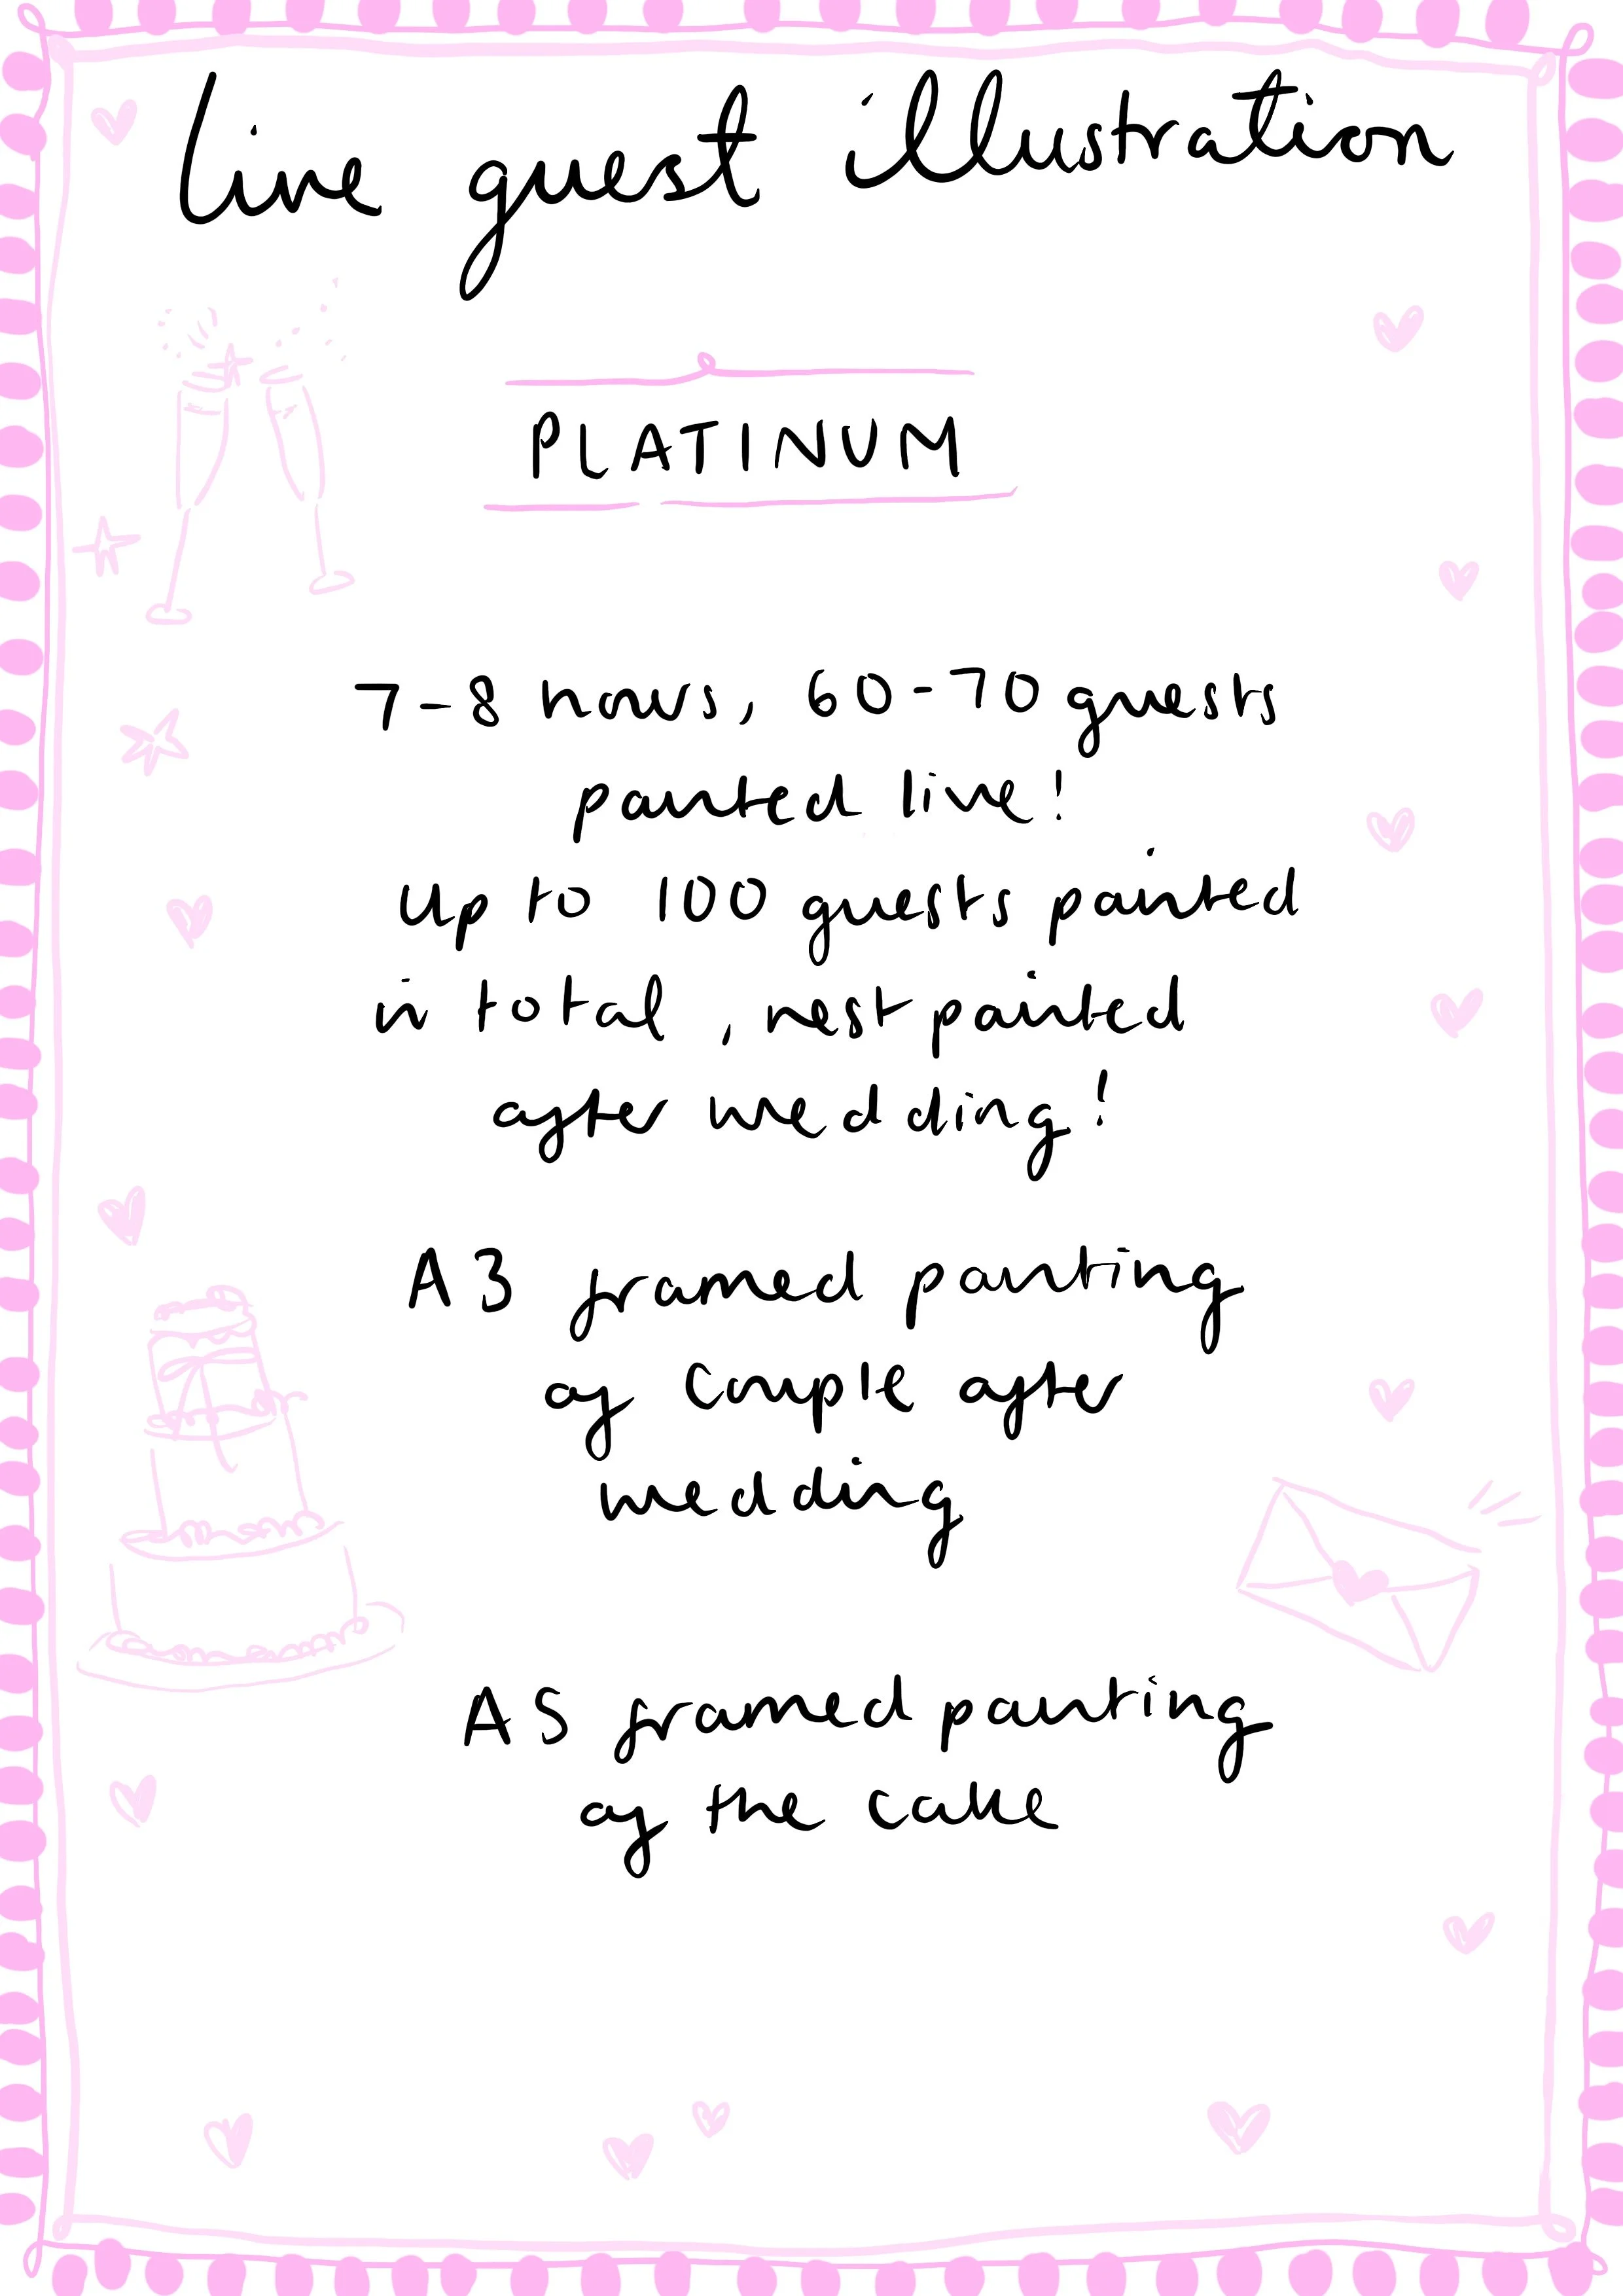 Live guest illustration
PLATINUM
7-8 hours, 60-70 guests
painted live!
Up to 100 guests painted
in total, rest painted
after wedding!
A3 framed painting
of couple after
wedding
A5 framed painting
of the cake